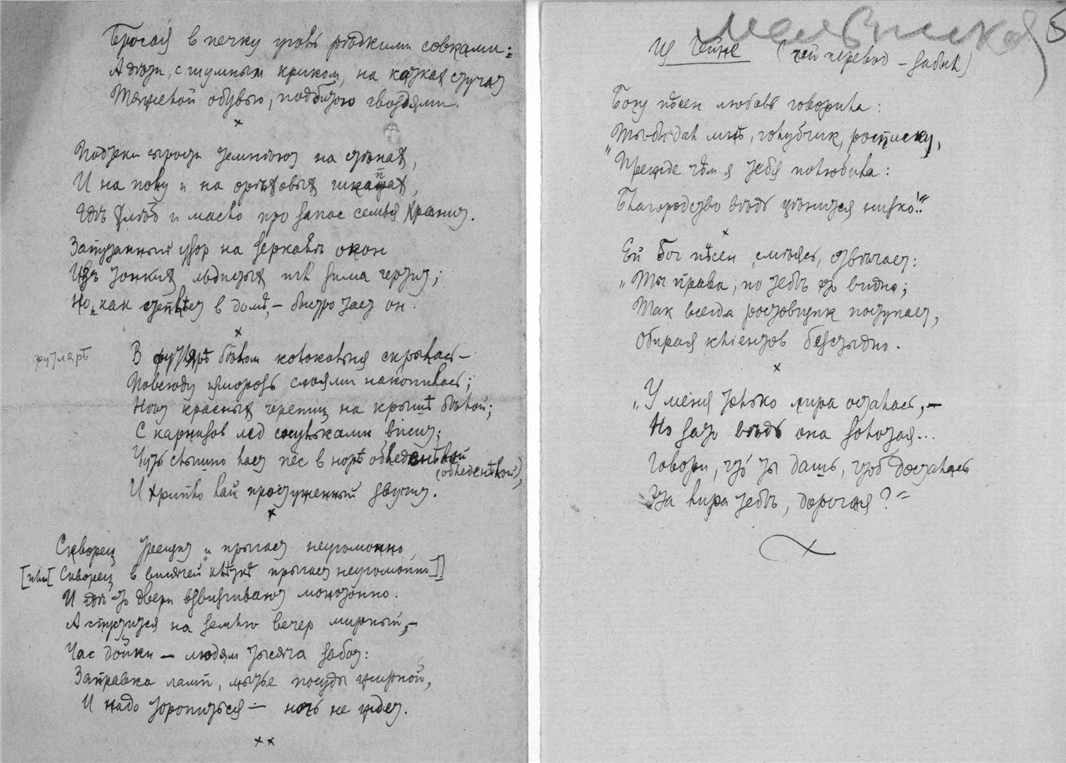 Бросая в печку уголь редкими совками:
А дети, с шумным криком, на катках стуча
Тяжелой обувью, подбитою гвоздями.
×
Подтеки сырости темнеют на стенах,
И на полу и на ореховых шкапах,
Где хлеб и масло про запас семья хранит.
Запутанный узор на зеркале окон
Из тонких льдистых игл зима чертит;
Но, как степлеет в доме, – быстро тает он.
×
футляре
В футляре белом колокольня скрылась –
Повсюду изморозь слоями накопилась;
Нету красных черепиц на крыше белой;
С карнизов лед сосульками висит;
Чуть слышно лает пес в норе обледенелой
(обледенелой),
И хрипло лай простуженный звучит.
×
Скворец трещит и прыгает неугомонно
[или [Скворец в висячей клетке прыгает неугомонно]]
И где-то двери взвизгивают монотонно.
А спустится на землю вечер мирный, –
Час дойки – людям тысяча забот:
Заправка ламп, мытье посуды жирной,
И надо торопиться – ночь не ждет.
××
Мальвинская 5
Из Гейне (чей перевод – забыл)
Богу песен любовь говорила:
"Ты бы дал мне, голубчик, расписку,
Прежде чем я тебя полюбила:
Благородство ведь ценится низко!"
×
Ей бог песен, смеясь, отвечает:
"Ты права, по тебе это видно;
Так всегда ростовщик поступает,
Обирая клиентов безстыдно.
×
"У меня только лира осталась, –
Но зато ведь она золотая...
Говори, что ты дашь, чтоб досталась
Эта лира тебе, дорогая?"